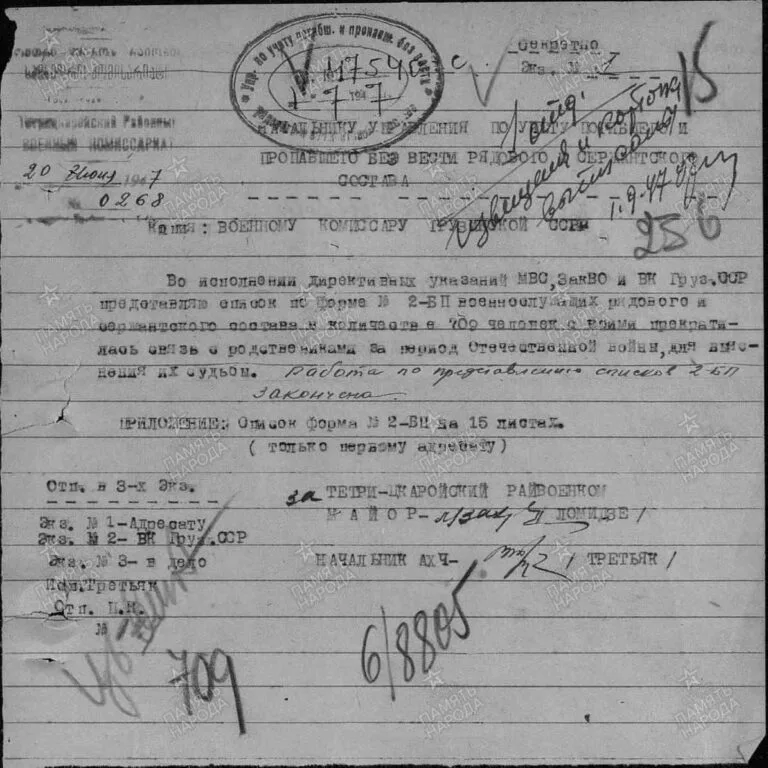 Секретно
Экз. №
Упр. по учету погибш. и пропавш. без вести
Тетрицкаройский Районный
ВОЕННЫЙ КОМИССАРИАТ
20 Июня 1947
№ 0268
15
НАЧАЛЬНИКУ УПРАВЛЕНИЯ ПО УЧЕТУ ПОГИБШЕГО И
ПРОПАВШЕГО БЕЗ ВЕСТИ РЯДОВОГО СЕРЖАНТСКОГО
СОСТАВА
1.9.47
Копия: ВОЕННОМУ КОМИССАРУ ГРУЗИНСКОЙ ССР
256
Во исполнении директивных указаний МВС, ЗакВО и ВК Груз.ССР
представляю список по форме № 2-БП военнослужащих рядового и
сержантского состава в количестве 709 человек с коими прекрати-
лась связь с родственниками за период Отечественной войны, для выяс-
нения их судьбы. Работа по представлению списков 2-БП
закончена.
ПРИЛОЖЕНИЕ: Список форма № 2-БП на 15 листах.
( только первому адресату)
Отп. в 3-х Экз.
за ТЕТРИ-ЦКАРОЙСКИЙ РАЙВОЕНКОМ
МАЙОР- / ЛОМИДЗЕ /
Экз. № 1-Адресату
Экз. № 2- ВК Груз.ССР
Экз. № 3- в дело
НАЧАЛЬНИК АХЧ- / ТРЕТЬЯК /
Исп.Третьяк
Отп.
№
6/8805
709
ПАМЯТЬ НАРОДА